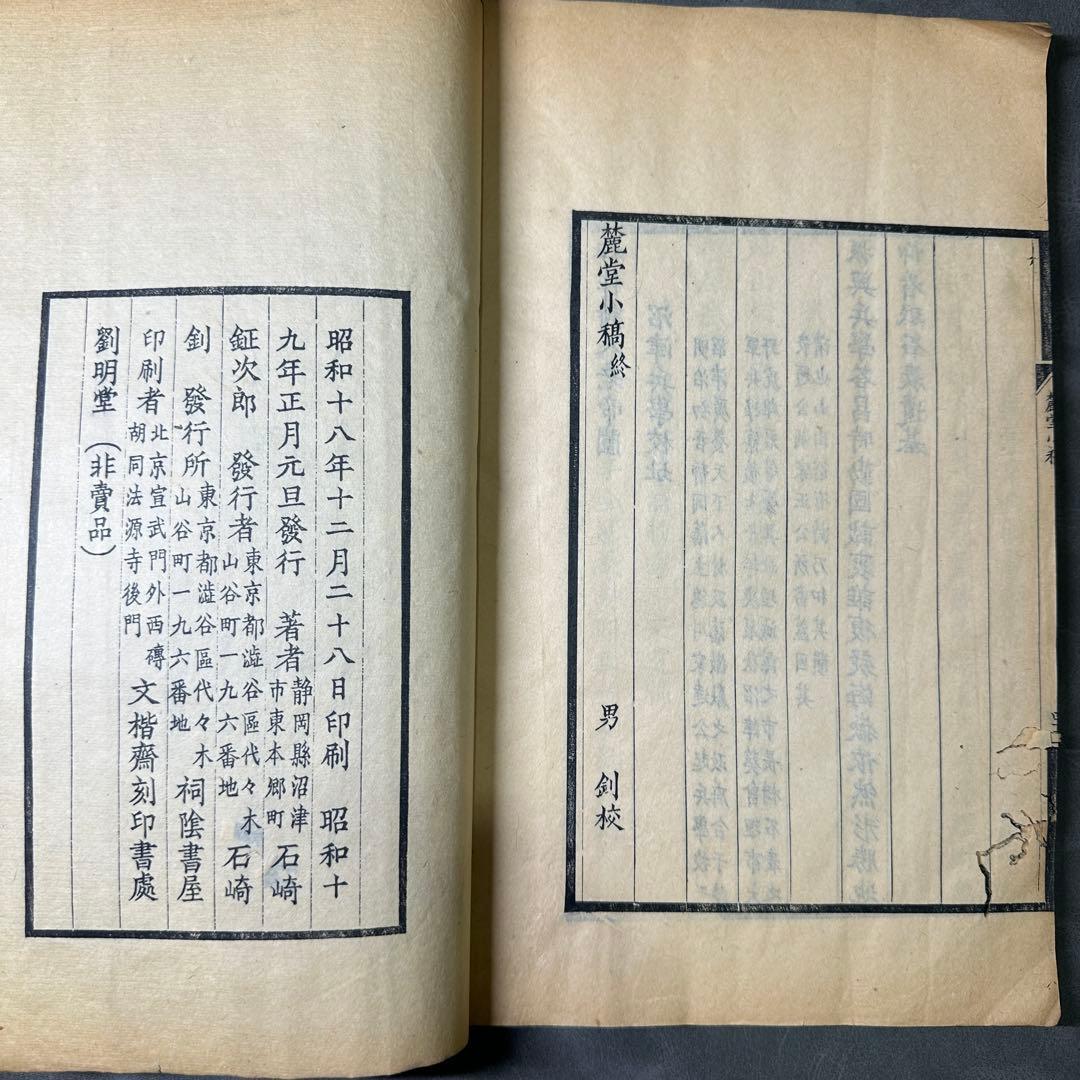 麓堂小稿
麓堂小稿終 男 釗校
昭和十八年十二月二十八日印刷 昭和十
九年正月元旦發行 著者 静岡縣沼津市東本郷町 石崎
鉦次郎 發行者 東京都澁谷區代々木山谷町一九六番地 石崎
釗 發行所 東京都澁谷區代々木山谷町一九六番地 祠陰書屋
印刷者 北京宣武門外西磚胡同法源寺後門 文楷齋刻印書處
劉明堂(非賣品)